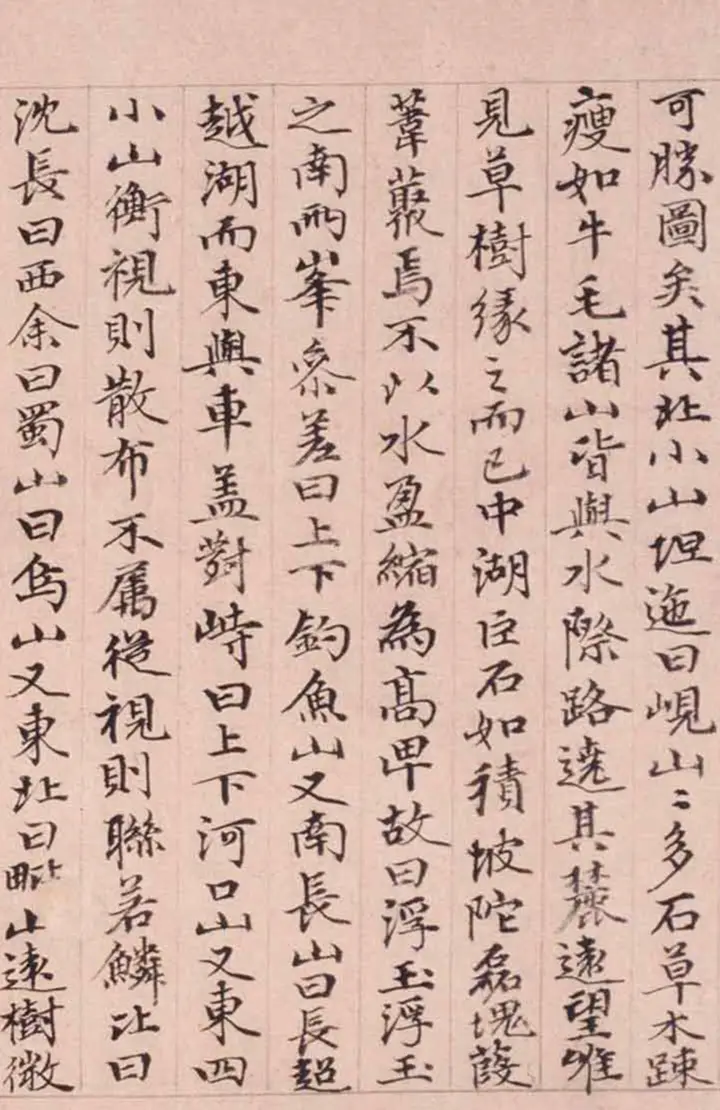 可勝圖矣其北小山坦迤曰峴山〻多石草木踈
瘦如牛毛諸山皆與水際路遶其麓遠望唯
見草樹緣之而已中湖巨石如積坡陀磊塊葭
葦藂焉不以水盈縮為高卑故曰浮玉浮玉
之南兩峯叅差曰上下釣魚山又南長山曰長超
越湖而東與車盖對峙曰上下河口山又東四
小山衡視則散布不属從視則聯若鱗比曰
沈長曰西余曰蜀山曰烏山又東北曰毗山遠樹微